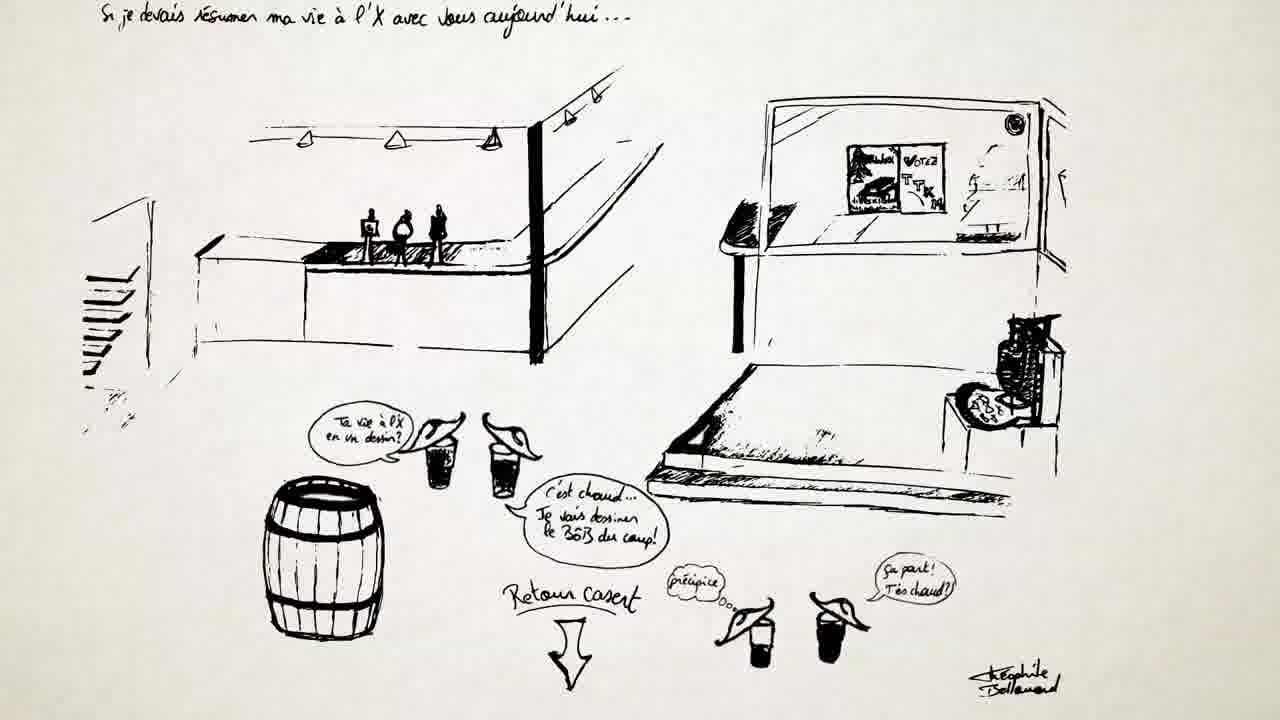 Si je devais résumer ma vie à l'X avec vous aujourd'hui...
VOTEZ
Ta vie à l'X
en un dessin?
C'est chaud...
Je vais dessiner
le BôB du coup!
Retour Casert
précipice
Ça part!
T'es chaud?!
Théophile